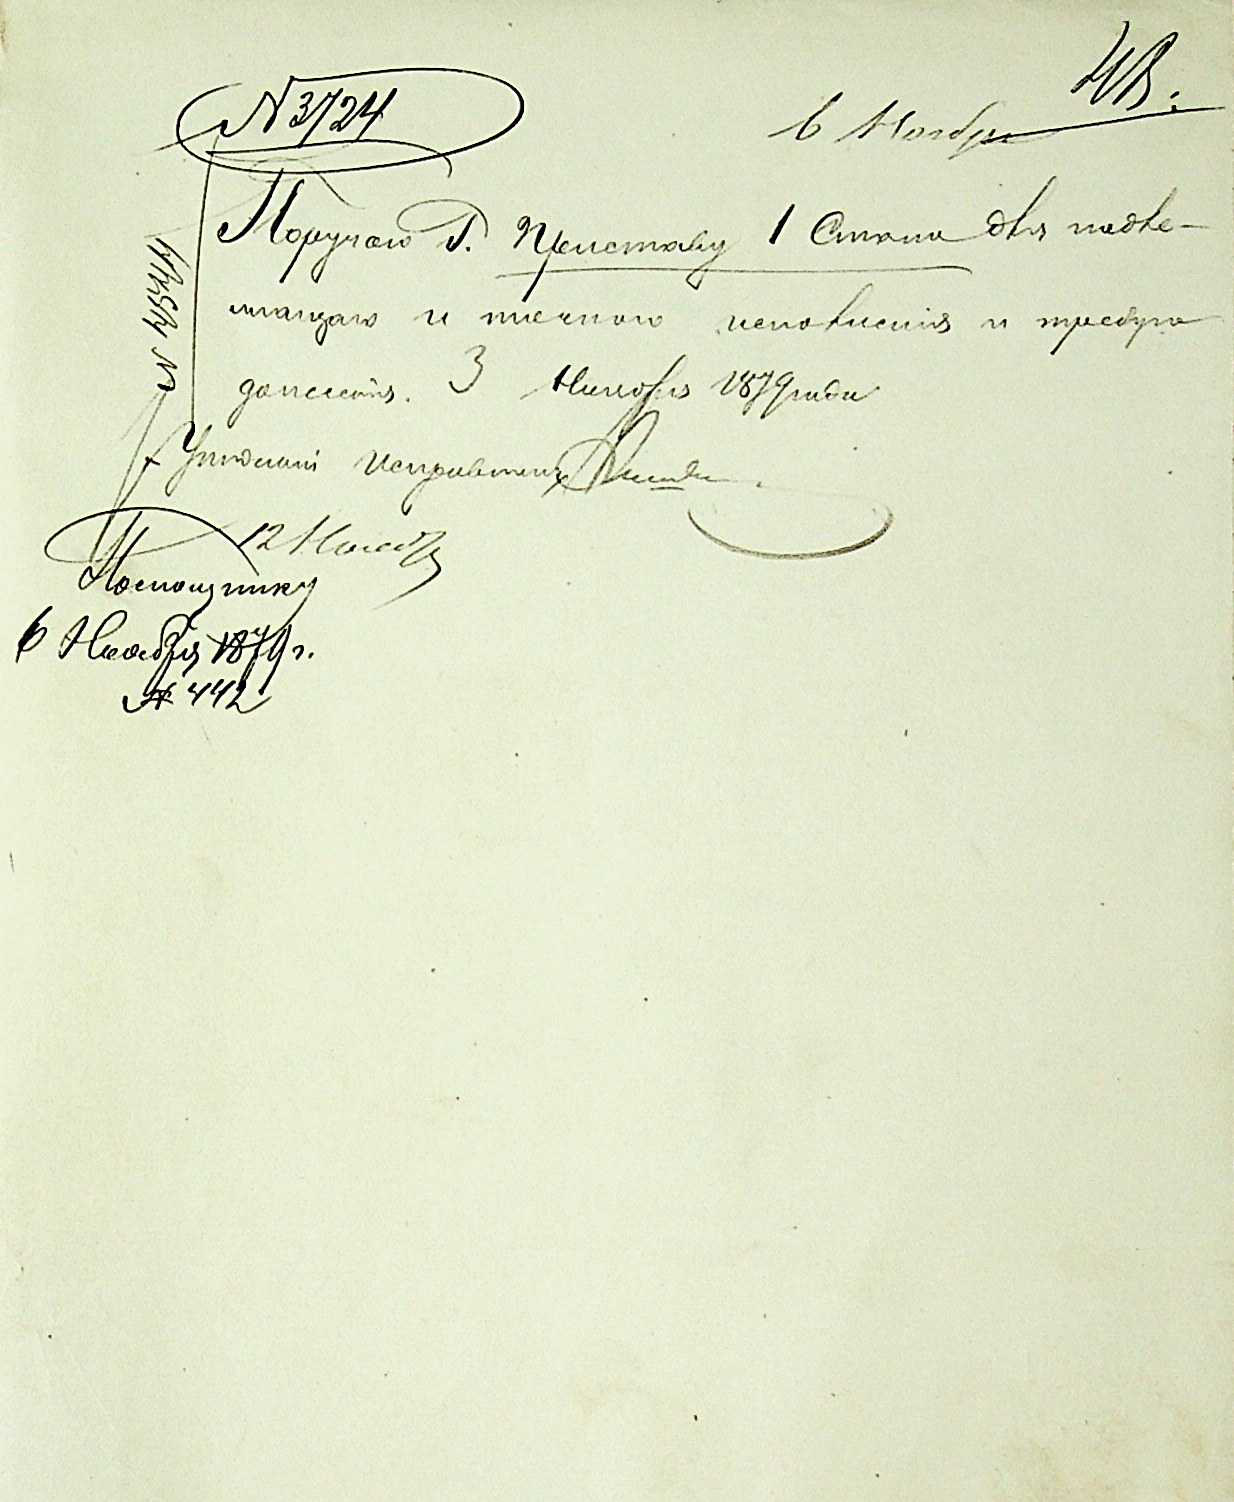 № 3724
6 Ноября
Поручаю Г. Приставу 1 Стана для надле-
жащаго и точнаго исполненія и требую
донесенія. 3 Ноября 1879 года
Уѣздный Исправникъ
12 Ноября
Помощнику
6 Ноября 1879 г.
№ 442